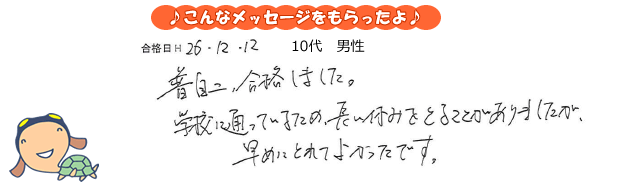 ♪こんなメッセージをもらったよ♪
合格日H 26・12・12 10代 男性
普自二、合格しました。
学校に通っているため、長い休みをとることがありましたが、
早めにとれてよかったです。